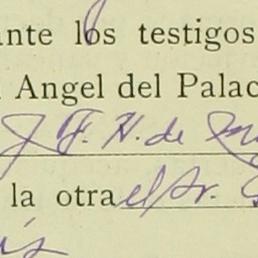 ante los testigos
Angel del Palac
J F. H. de
la otra el Sr.